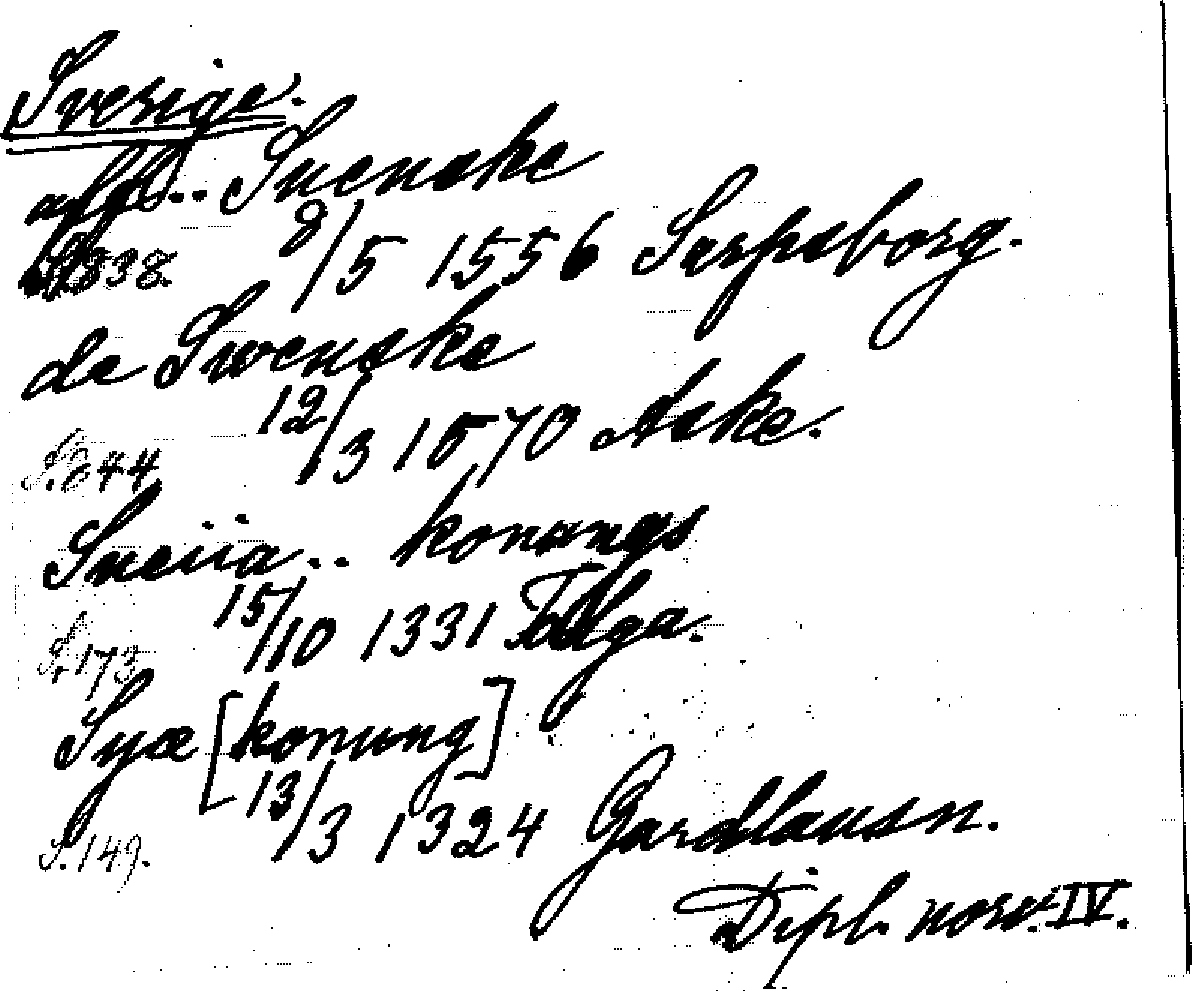 Sverige.
aff.. Suenske
S. 838. 8/5 1556 Sarpsborg.
de Swenske
S. 844 12/3 1570 Aske.
Sueiia.. konungs
S. 173 15/10 1331 Tolga.
Syæ [konung]
S. 149. 13/3 1324 Gardlausn.
Dipl. norv. IV.